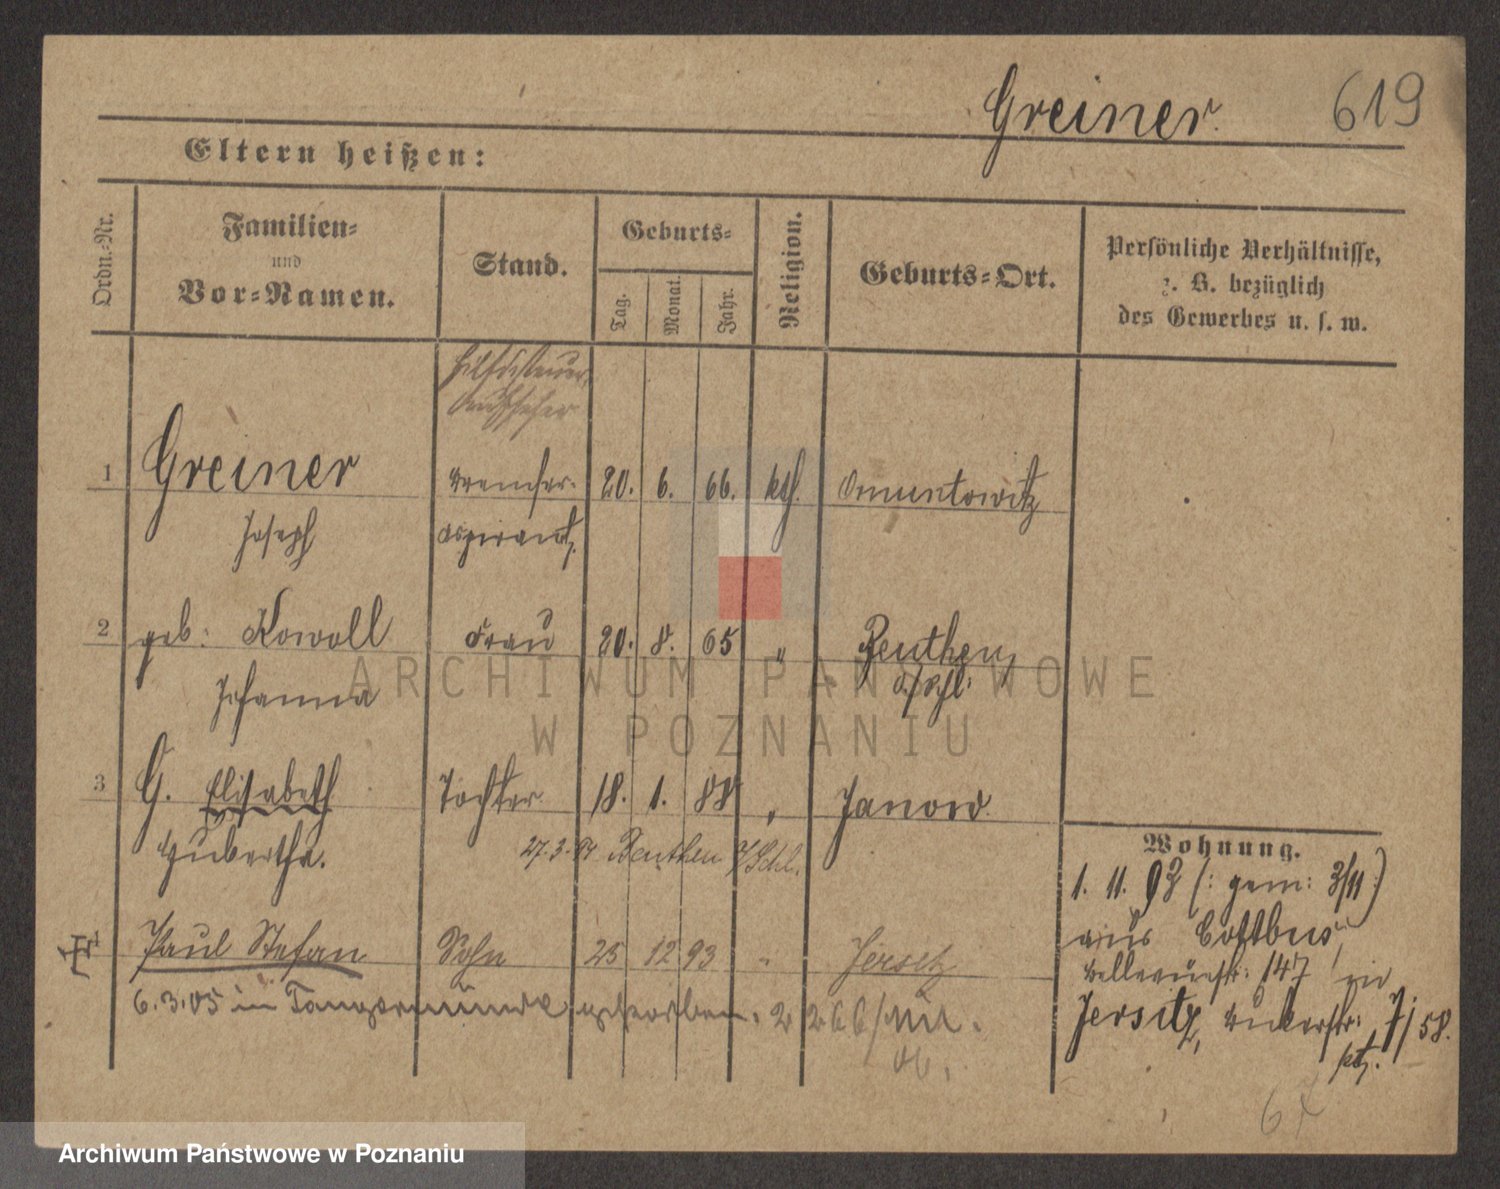 Greiner. 619
Eltern heißen:
Ordn.-Nr.
Familien-
und
Vor-Namen.
Stand.
Geburts-
Tag.
Monat.
Jahr.
Religion.
Geburts-Ort.
Persönliche Verhältnisse,
z. B. bezüglich
des Gewerbes u. s. w.
Hilfssteuer
Aufseher
1 Greiner 20. 6. 66. kth.
Joseph aspirant
2 geb: Kowoll Frau 20. 8. 65 " Beuthen
Johanna O/Schl:
3 G. Elisabeth Tochter 18. 1. 88 " Janow
Hubertha. 27.3. Beuthen O/Schl.
Wohnung.
1. 11. 93 (: gem: 3/11 :)
aus Cottbus
147 in
Jersitz, 7/58.
4 Paul Stefan Sohn 25 12 93 " Jersitz
6.3.05 in Tangermünde gestorben.
ARCHIWUM PAŃSTWOWE
W POZNANIU
Archiwum Państwowe w Poznaniu